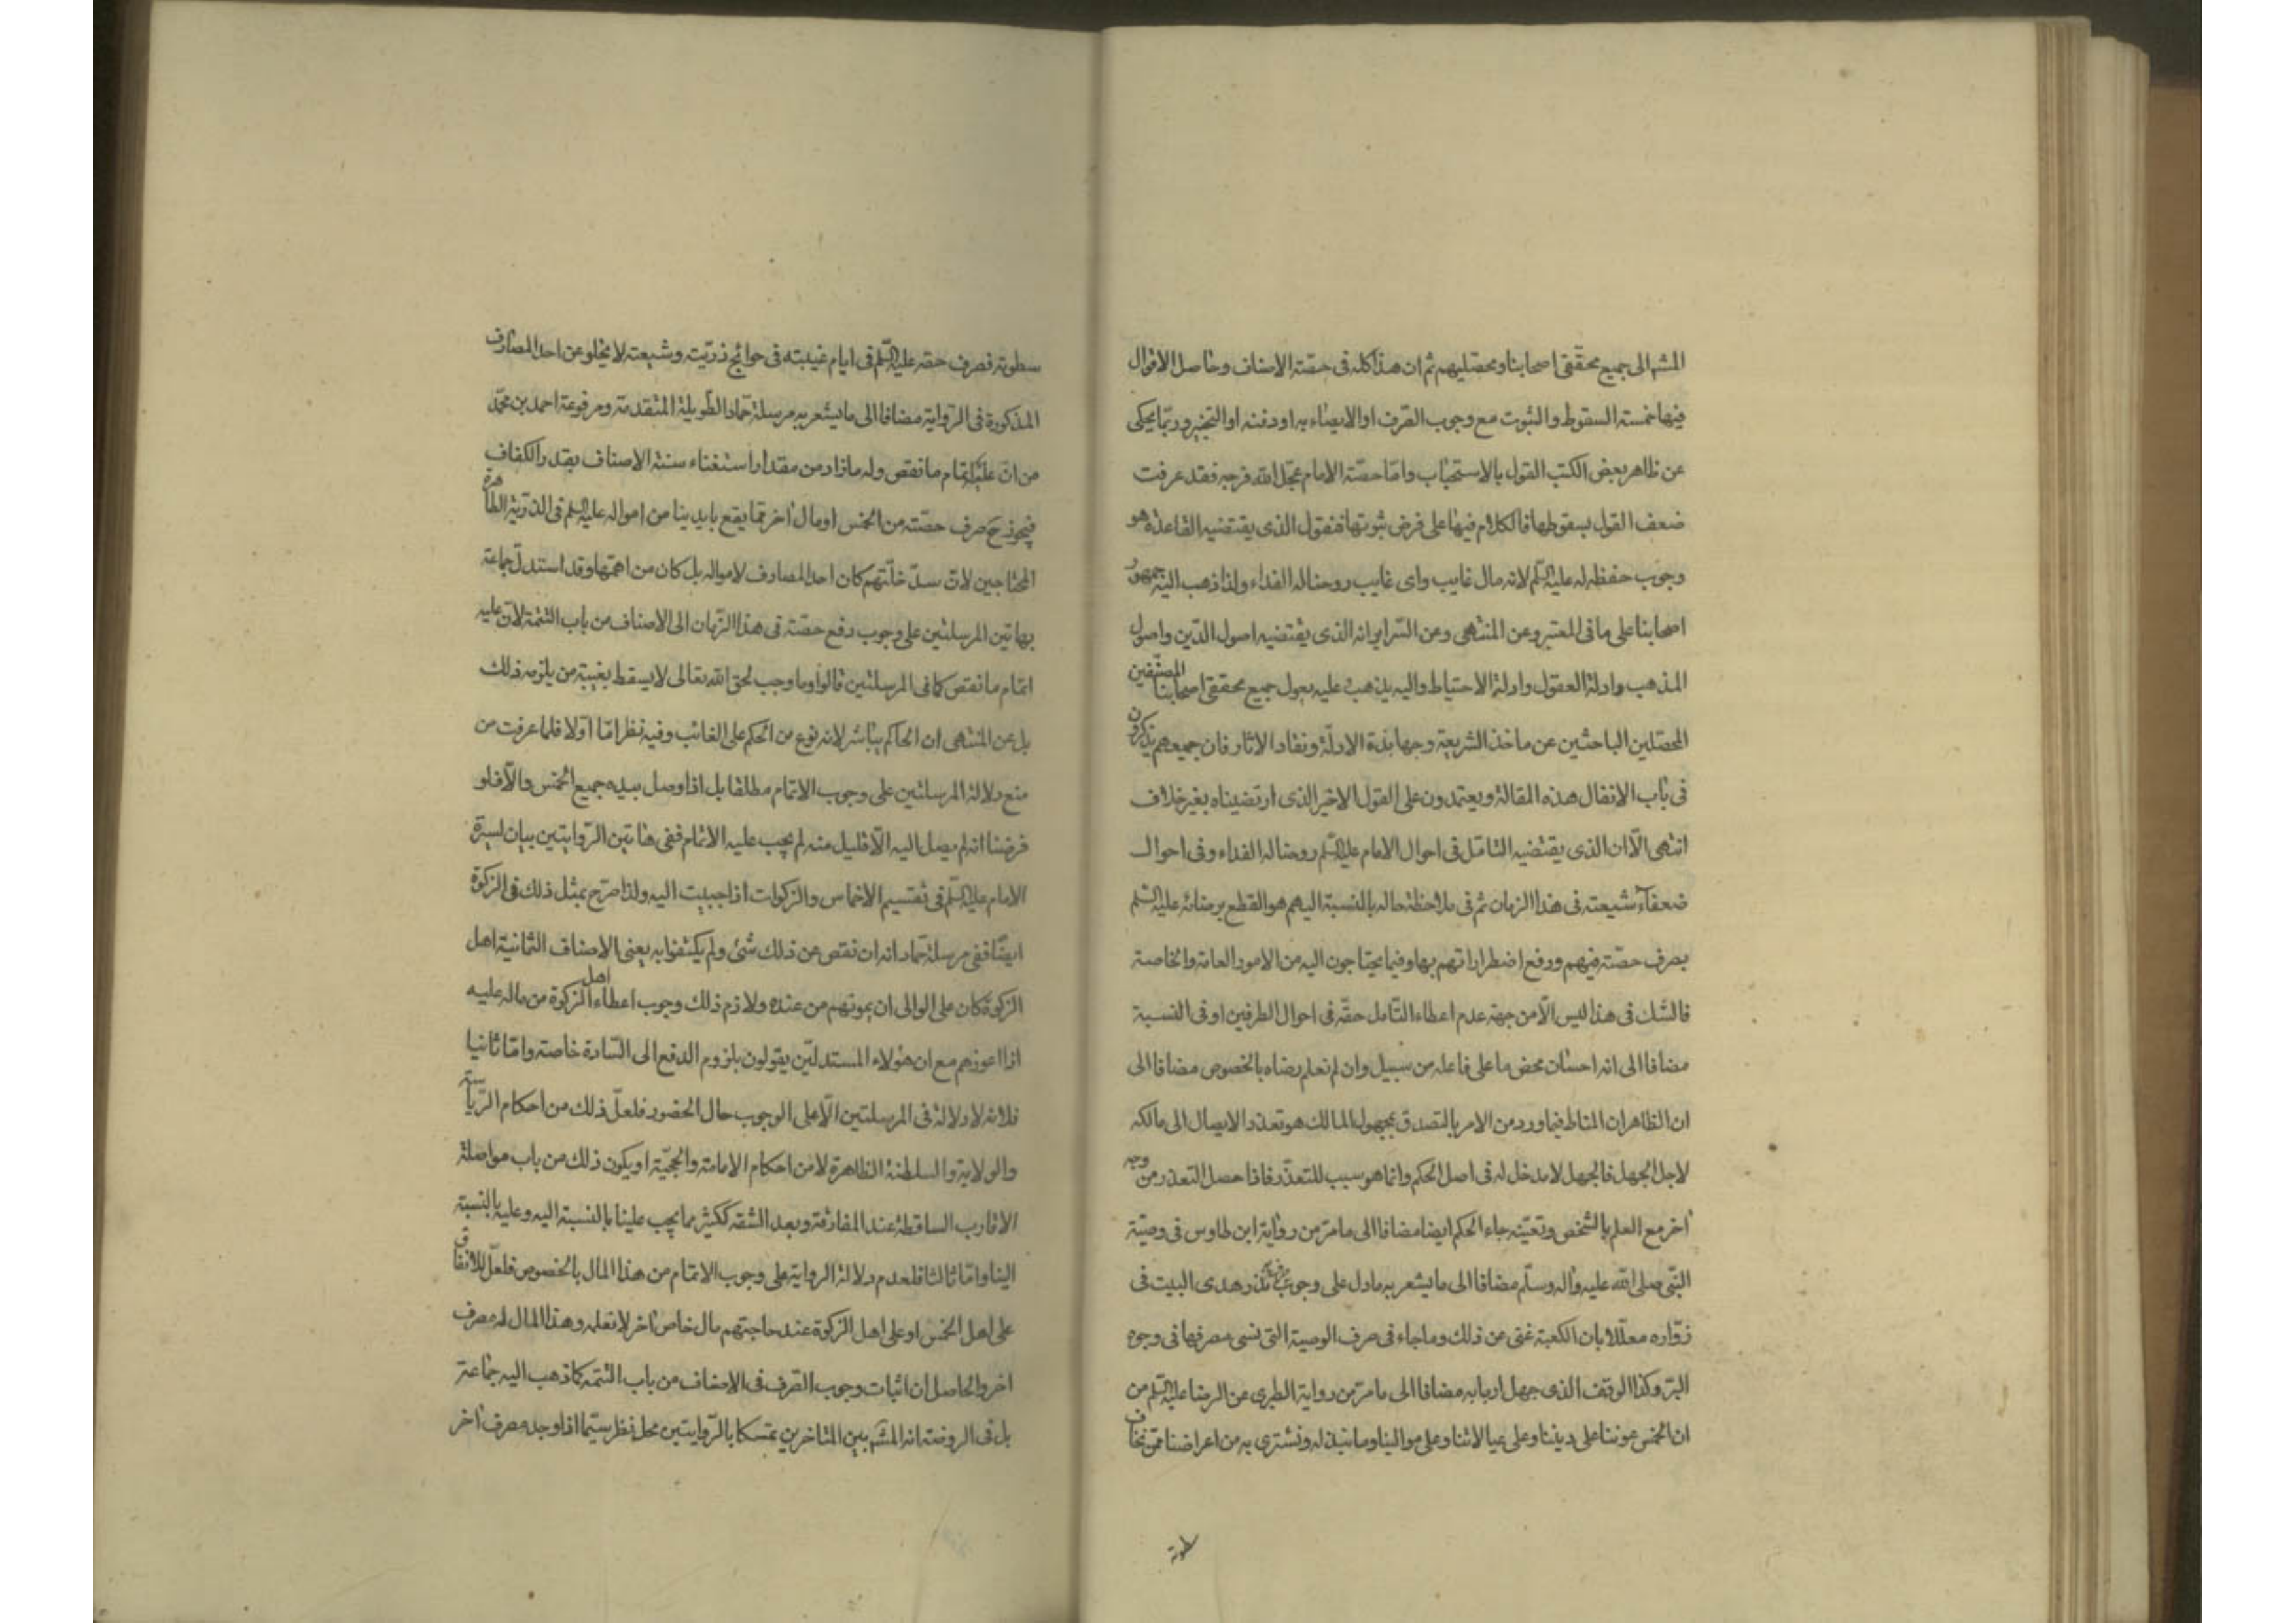 المشه الى جميع محققى اصحابنا ومحصليهم ثم ان هذا كله فى حصّة الاصناف وحاصل الاقوال
فيها خمسته السقوط والثبوت مع وجوب الصرف او الايصاء به او دفنه او التخيير وربّما يحكى
عن ظاهر بعض الكتب القول بالاستحباب وامّا حصّة الامام عجّل الله فرجه فقد عرفت
ضعف القول بسقوطها فالكلام فيها على فرض ثبوتها فنقول الذى يقتضيه القاعدة هو
وجوب حفظه له عليه السّلم لانه مال غايب واى غايب روحنا له الفداء ولذا ذهب اليه جمهور
اصحابنا على ما فى المعتبر وعن المنتهى وعن السّراير انه الذى يقتضيه اصول الدّين واصول
المذهب وادلة العقول وادلة الاحتياط واليه يذهب وعليه يعول جميع محققى اصحابنا المصنّفين
المحصّلين الباحثين عن ماخذ الشريعة وجهابذة الادلّة ونقاد الاثار فان جميعهم يذكرون
فى باب الانفال هذه المقالة ويعتمدون على القول الاخير الذى ارتضيناه بغير خلاف
انتهى الّا ان الذى يقتضيه التامّل فى احوال الامام عليه السّلم روحنا له الفداء وفى احوال
ضعفآء شيعته فى هذا الزمان ثم فى ملاحظة حاله بالنسبة اليهم هو القطع برضائه عليه السّلم
بصرف حصّته فيهم ورفع اضطراراتهم بها وفيما يحتاجون اليه من الامور العامة والخاصة
فالشك فى هذا ليس الّا من جهة عدم اعطاء التّامل حقّه فى احوال الطرفين او فى النسبة
مضافا الى انه احسان محض ما على فاعله من سبيل وان لم نعلم رضاه بالخصوص مضافا الى
ان الظاهر ان المناط فيما ورد من الامر بالتصدق بمجهول المالك هو تعذر الايصال الى مالكه
لاجل الجهل فالجهل لا مدخل له فى اصل الحكم وانما هو سبب للتعذّر فاذا حصل التعذر من وجه
اخر مع العلم بالشخص وتعيّنه جاء الحكم ايضا مضافا الى ما مرّ من رواية ابن طاوس فى وصيّة
النّبى صلى الله عليه واله وسلّم مضافا الى ما يشعر به ما دل على وجوب صرف نذر هدى البيت فى
زوّاره معلّلا بان الكعبة غنى عن ذلك وما جاء فى صرف الوصية التى نسى مصرفها فى وجوه
البرّ وكذا الوقف الذى جهل اربابه مضافا الى ما مرّ من رواية الطبرى عن الرضا عليه السّلم من
ان الخمس عوننا على ديننا وعلى عيالاتنا وعلى موالينا وما نبذله ونشترى به من اعراضنا ممّن نخاف
سطوته
سطوته فصرف حصّه عليه السّلم فى ايام غيبته فى حوائج ذريّته وشيعته لا يخلو عن احد المصارف
المذكورة فى الرّواية مضافا الى ما يشعر به مرسلة حمّاد الطّويلة المتقدمة ومرفوعة احمد بن محمّد
من انّ عليه اتمام ما نقص وله ما زاد من مقدار استغناء ستة الاصناف بقدر الكفاف
فيجوز ح صرف حصّته من الخمس او مال اخر ممّا يقع بايدينا من امواله عليه السلم فى الذرّية الطاهرة
المحتاجين لانّ سدّ خلّتهم كان احد المصارف لامواله بل كان من اهمّها وقد استدلّ جماعة
بهاتين المرسلتين على وجوب دفع حصّته فى هذا الزّمان الى الاصناف من باب التتمة لان عليه
اتمام ما نقص كما فى المرسلتين قالوا وما وجب لحق الله تعالى لا يسقط بغيبة من يلزمه ذلك
بل عن المنتهى ان الحاكم يباشر لانه نوع من الحكم على الغائب وفيه نظر امّا اوّلا فلما عرفت من
منع دلالة المرسلتين على وجوب الاتمام مطلقا بل اذا وصل بيده جميع الخمس والّا فلو
فرضنا انه لم يصل اليه الّا قليل منه لم يجب عليه الاتمام ففى هاتين الرّوايتين بيان لسيرة
الامام عليه السّلم فى تقسيم الاخماس والزكوات اذا جبيت اليه ولذا صرّح بمثل ذلك فى الزكوة
ايضا ففى مرسلة حمّاد انه ان نقص من ذلك شئ ولم يكتفوا به يعنى الاصناف الثمانية اهل
الزكوة كان على الوالى ان يمونهم من عنده ولازم ذلك وجوب اعطاء اهل الزكوة من ماله عليه
اذا اعوزهم مع ان هؤلاء المستدلّين يقولون بلزوم الدفع الى السّادة خاصّة وامّا ثانيا
فلانه لا دلالة فى المرسلتين الّا على الوجوب حال الحضور فلعلّ ذلك من احكام الرّياسة
والولاية والسلطنة الظاهرة لا من احكام الامامة والحجّية او يكون ذلك من باب مواصلة
الاقارب الساقطة عند المفارقة وبعد الشقه ككثير ما يجب علينا بالنسبة اليه وعليه بالنسبة
الينا وامّا ثالثا فلعدم دلالة الرواية على وجوب الاتمام من هذا المال بالخصوص فلعلّ للانفاق
على اهل الخمس او على اهل الزكوة عند حاجتهم مال خاص اخر لا نعلمه وهذا المال له مصرف
اخر والحاصل ان اثبات وجوب الصرف فى الاصناف من باب التتمّه كما ذهب اليه جماعة
بل فى الروضة انه المشه بين المتاخرين تمسكا بالرّوايتين محل نظر سيّما اذا وجد مصرف اخر